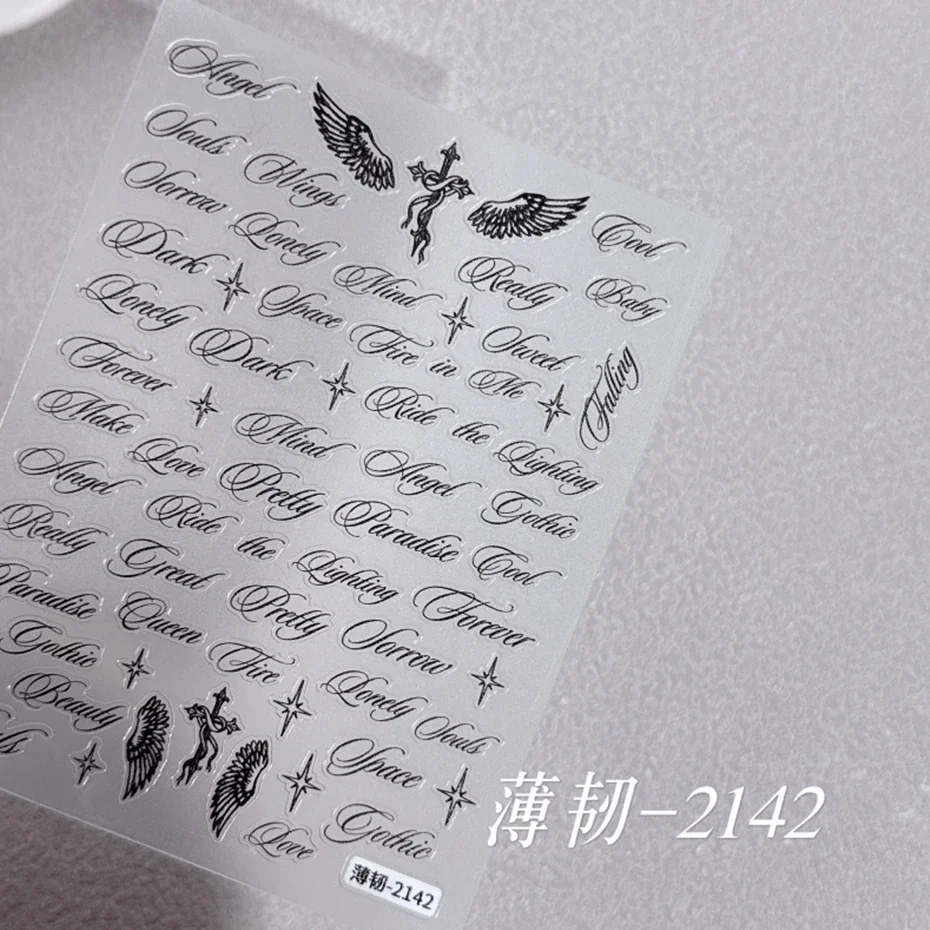 Angel
Souls Wings
Sorrow Lonely Cool
Dark Mind Really Baby
Lonely Space Fire in Me Sweet Falling
Forever Dark Ride the Lighting
Make Love Mind Angel Gothic
Angel Pretty Paradise Cool
Really Ride the Lighting Forever
Paradise Great Pretty Sorrow
Gothic Queen Fire Lonely Souls
Beauty Space
Love Gothic
薄韧-2142
薄韧-2142